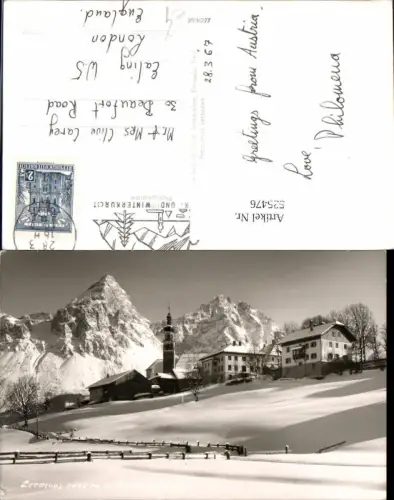 Greetings from Austria.
Love
Philomena
28.3.67
Mr & Mrs Clive Carey
30 Beaufort Road
Ealing W5
London
England.
UND WINTERKURORT
28.3
2
Artikel Nr.
525476
Lermoos